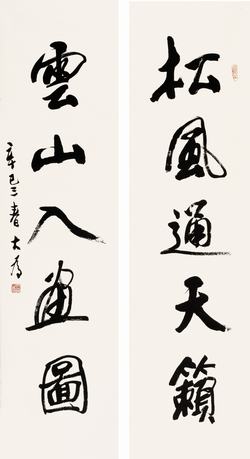 松風通天籟
雲山入畫圖
辛巳三春大為